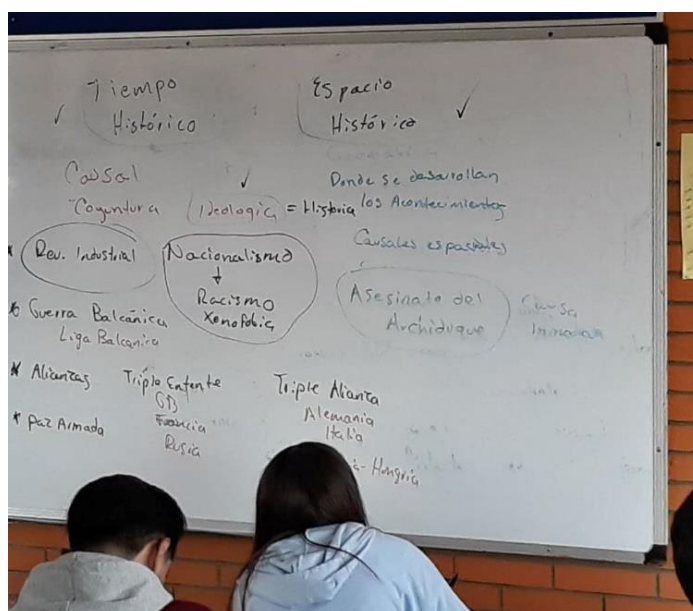 Tiempo
Histórico
Espacio
Histórico
Causal
Coyuntura
Ideología = Historia
Donde se desarrollan
los Acontecimientos
Causales espaciales
* Rev. Industrial
Nacionalismo
↓
Racismo
Xenofobia
Asesinato del
Archiduque
Causa
* Guerra Balcánica
Liga Balcanica
* Alianzas
Triple Entente
GB
Francia
Rusia
Triple Alianza
Alemania
Italia
- Hungría
* Paz Armada